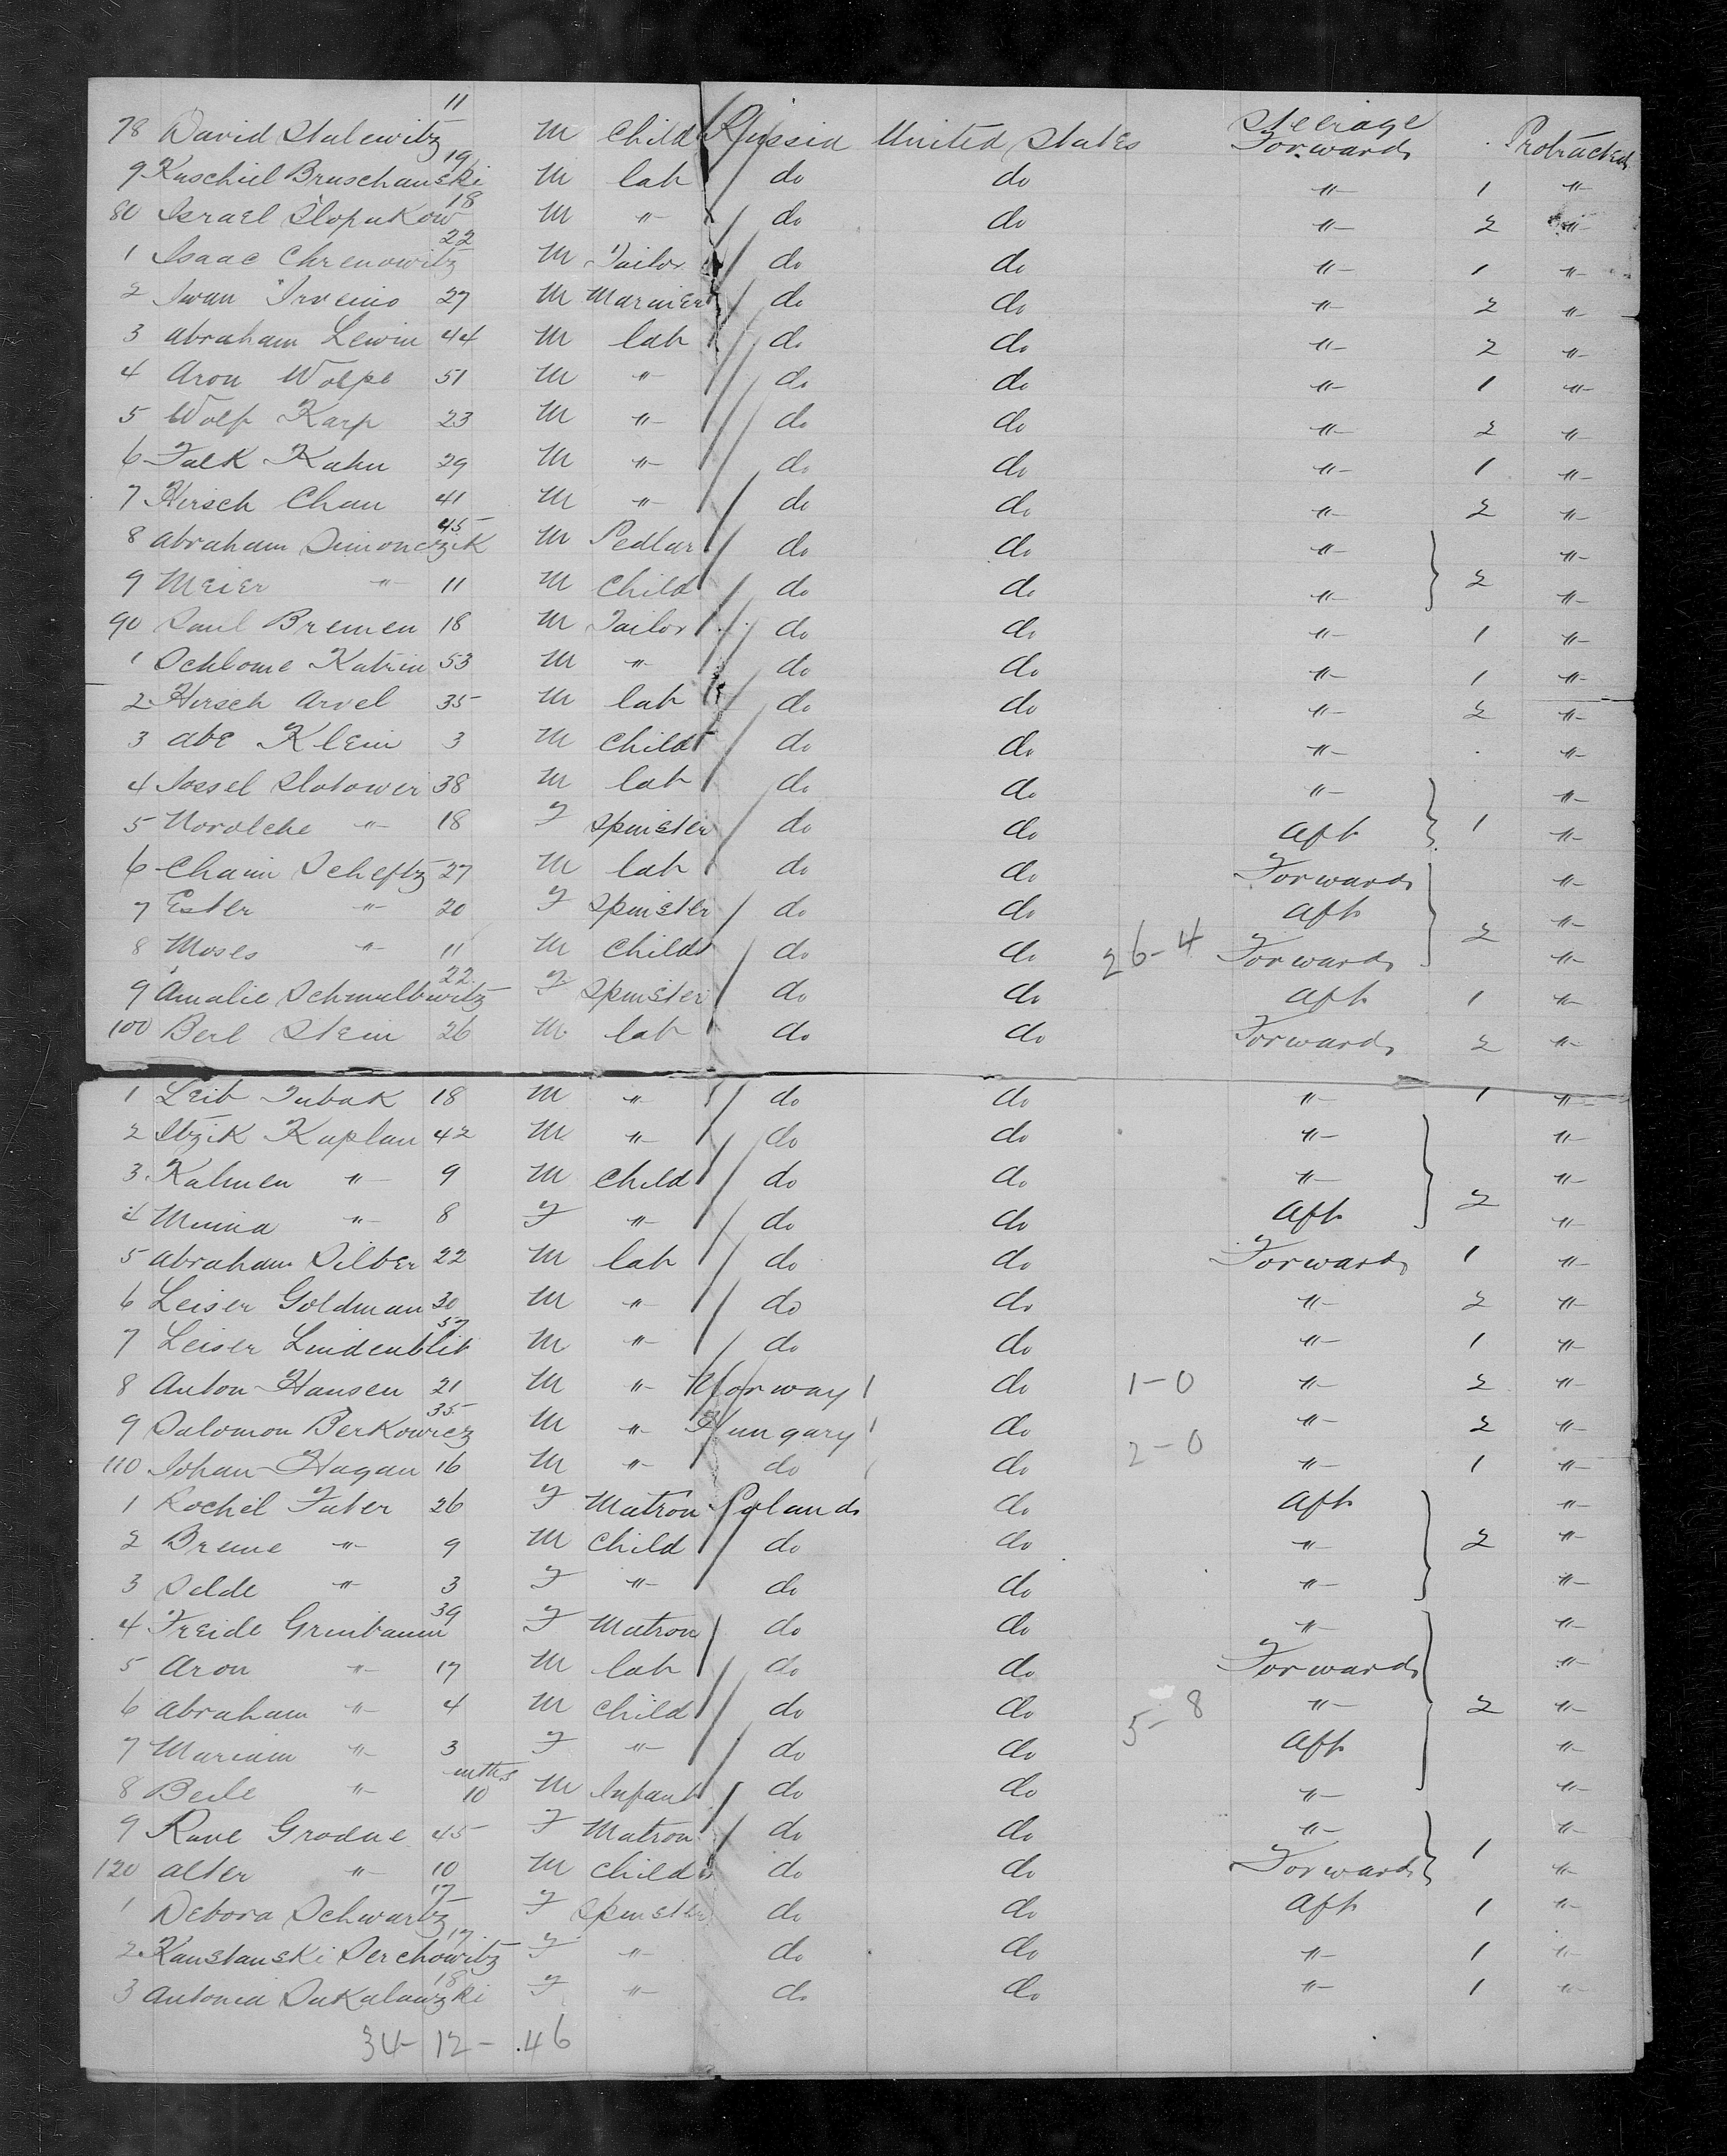 78 David Stulewitz 11 M Child Russia United States Steerage Forwards Protracted
9 Kuschiel Bruschanski 19 M lab do do " 1 "
80 Israel Slopukow 18 M " do do " 2 "
1 Isaac Chrenowitz 22 M Tailor do do " 1 "
2 Iwan 27 M Marnier do do " 2 "
3 Abraham Lewin 44 M lab do do " 2 "
4 Aron Wolpe 51 M " do do " 1 "
5 Wolf Karp 23 M " do do " 2 "
6 Falk Kahn 29 M " do do " 1 "
7 Hirsch Chan 41 M " do do " 2 "
8 Abraham Simonczik 45 M Pedlar do do " "
9 Meier " 11 M Child do do " 2 "
90 Saul Bremen 18 M Tailor do do " 1 "
1 Schlome Katrin 53 M " do do " 1 "
2 Hirsch Arvel 35 M lab do do " 2 "
3 Abe Klein 3 M Child do do " "
4 Jossel Slotower 38 M lab do do " "
5 " 18 F Spinster do do Aft 1 "
6 Chaim Scheftz 27 M lab do do Forwards "
7 Ester " 20 F Spinster do do Aft "
8 Moses " 11 M Child do do 26-4 Forwards 2 "
9 Amalie Schmulewitz 22 F Spinster do do Aft 1 "
100 Berl Stein 26 M lab do do Forwards 2 "
1 Leib Tubak 18 M " do do " 1 "
2 Itzik Kaplan 42 M " do do " "
3 Kalmen " 9 M Child do do " "
4 Minna " 8 F " do do Aft 2 "
5 Abraham Silber 22 M lab do do Forwards 1 "
6 Leiser Goldman 30 M " do do " 2 "
7 Leiser Lindenblit 57 M " do do " 1 "
8 Anton Hansen 21 M " Norway do 1-0 " 2 "
9 Salomon Berkowicz 35 M " Hungary do " 2 "
110 Johan Hagan 16 M " do do 2-0 " 1 "
1 Rochel Faber 26 F Matron Poland do Aft "
2 Breme " 9 M Child do do " 2 "
3 Selde " 3 F " do do " "
4 Freide Grunbaum 39 F Matron do do " "
5 Aron " 17 M lab do do Forwards "
6 Abraham " 4 M Child do do 5-8 " 2 "
7 Mariam " 3 F " do do Aft "
8 Beile " mths 10 M Infant do do " "
9 Rave Grodne 45 F Matron do do " "
120 Alter " 10 M Child do do Forwards 1 "
1 Debora Schwartz 17 F Spinster do do Aft 1 "
2 Kanstanski Serchowitz 17 F " do do " 1 "
3 Antonia Sukalawzki 18 F " do do " 1 "
34-12-46